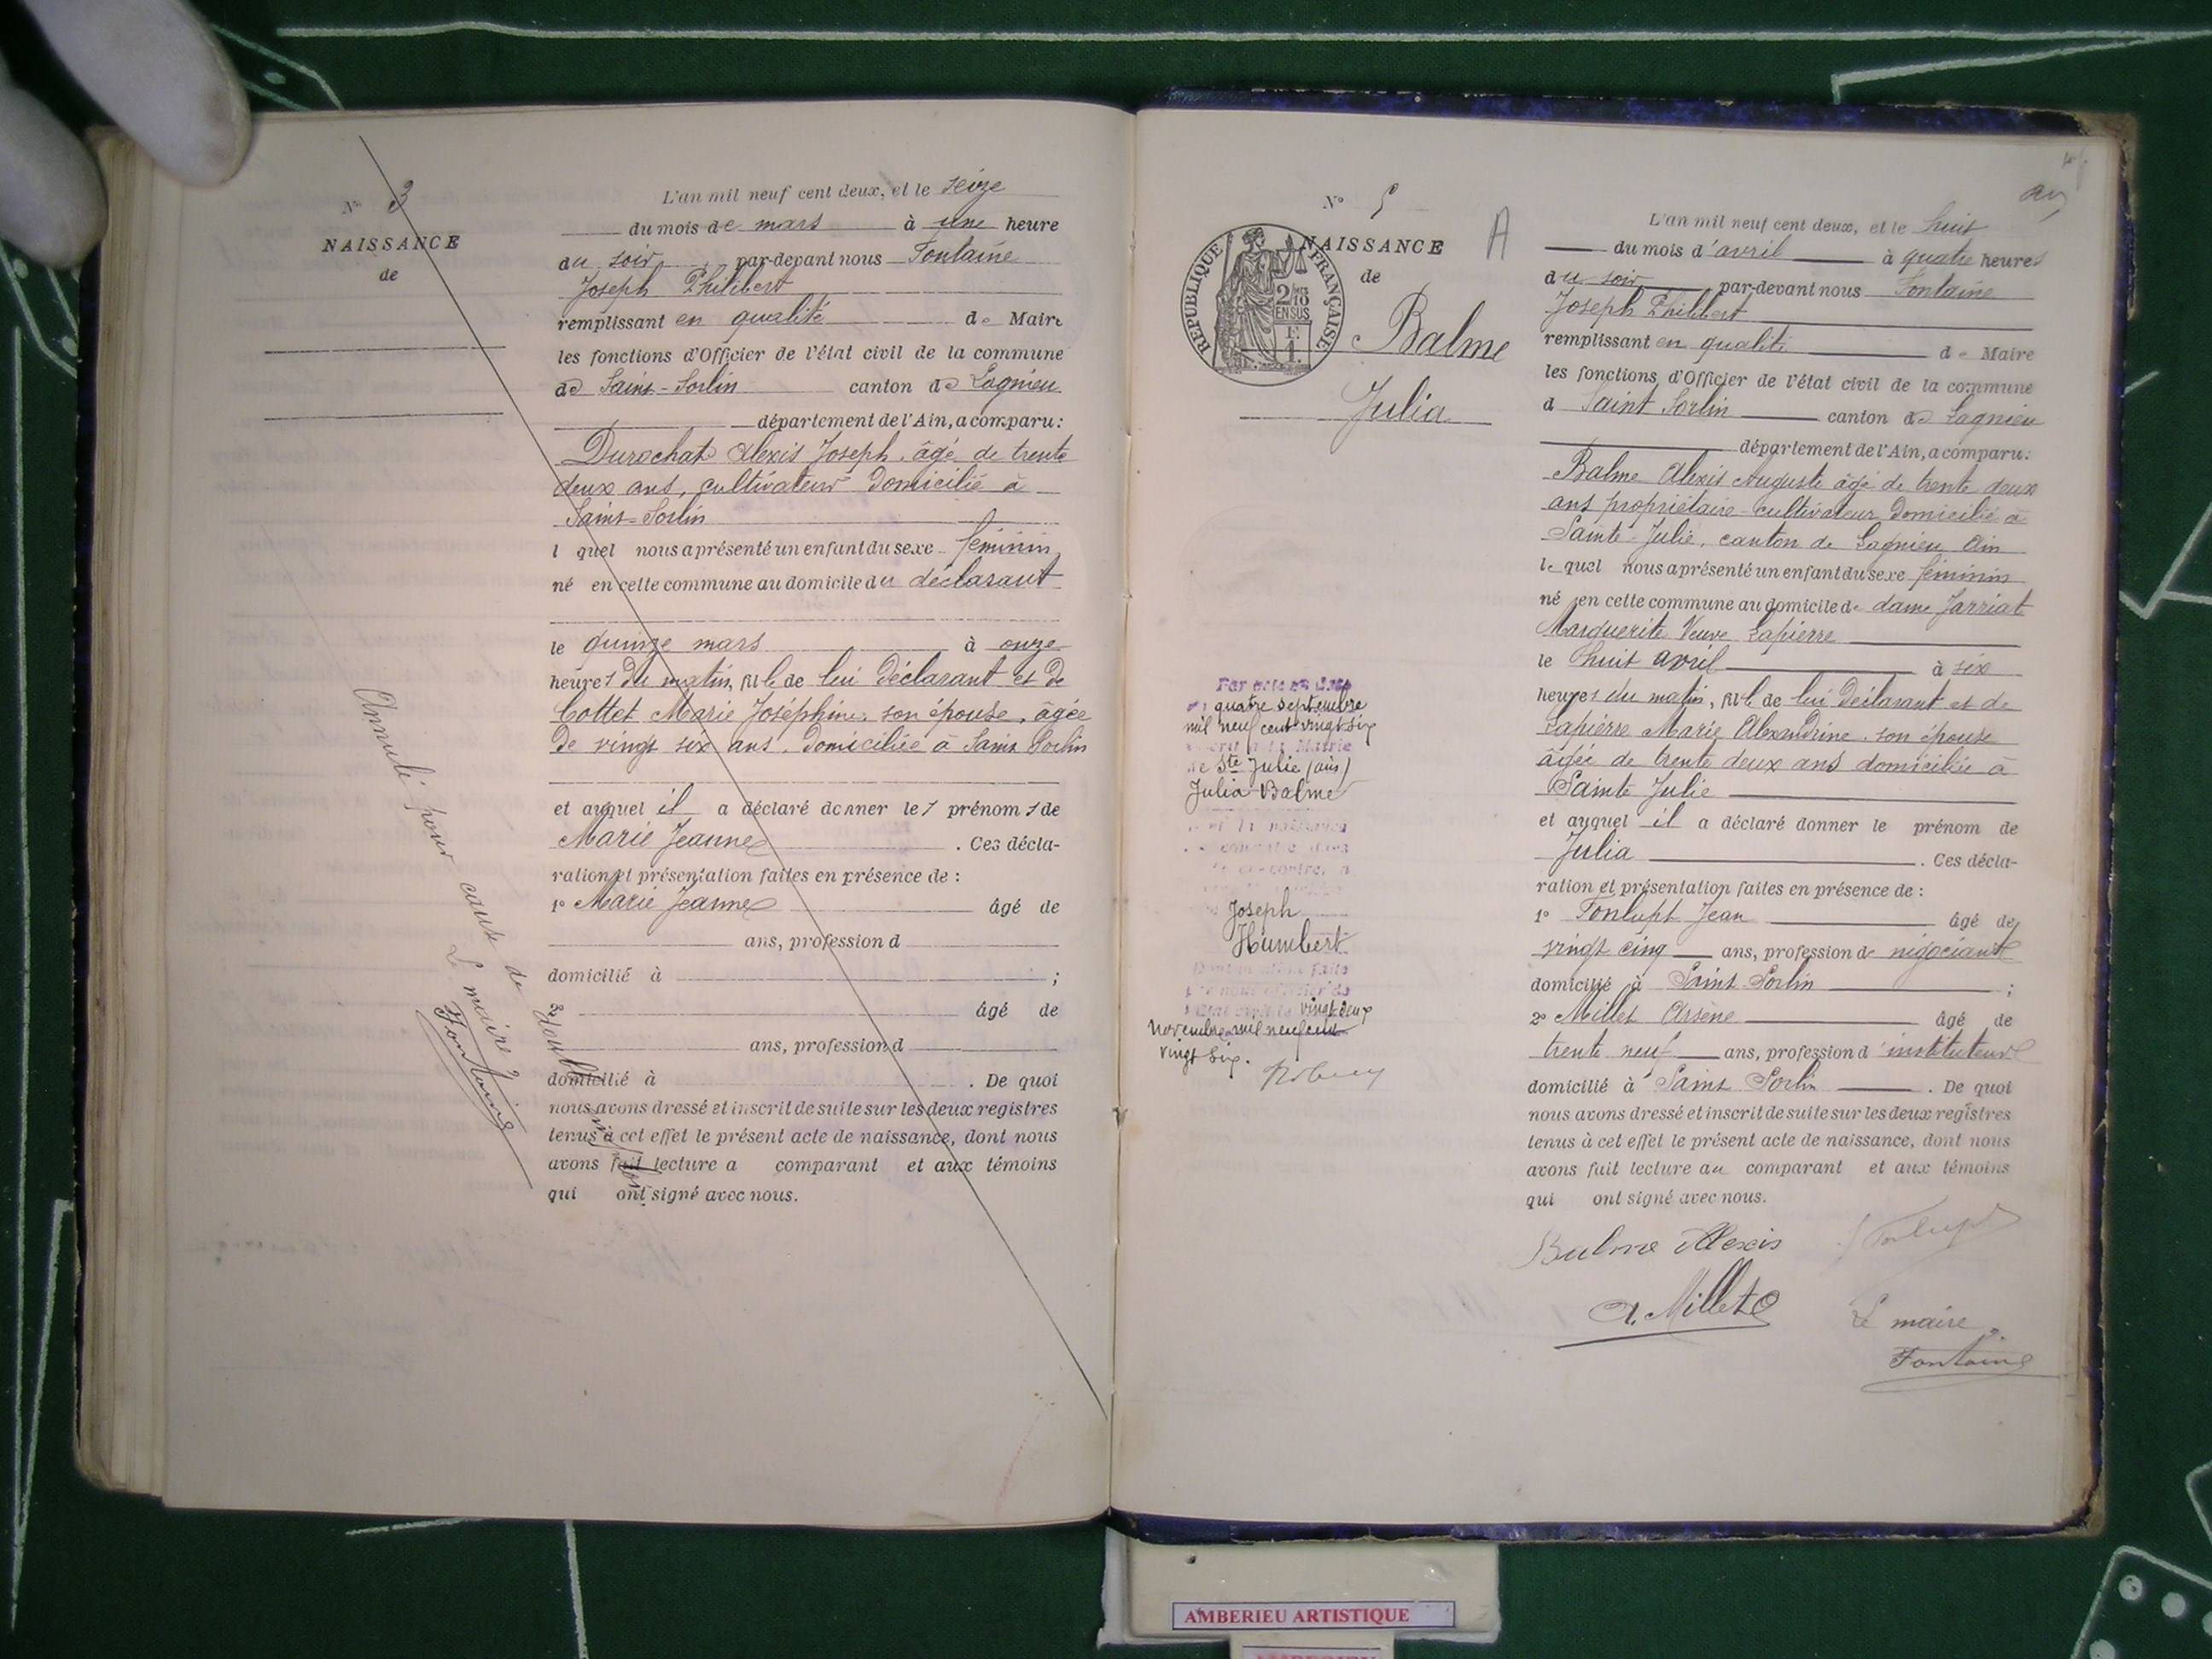 N° 3
NAISSANCE
de
L'an mil neuf cent deux, et le seize
du mois de mars à une heure
du soir, par-devant nous Fontaine
Joseph Philibert
remplissant en qualité de Maire
les fonctions d'Officier de l'état civil de la commune
de Saint-Sorlin canton de Lagnieu
département de l'Ain, a comparu:
Durochat Alexis Joseph, âgé de trente
deux ans, cultivateur domicilié à
Saint-Sorlin
l quel nous a présenté un enfant du sexe féminin,
né en cette commune au domicile du déclarant
le quinze mars à onze
heures du matin, fille de lui déclarant et de
Cottet Marie Joséphine, son épouse, âgée
de vingt six ans, domiciliée à Saint Sorlin
et auquel il a déclaré donner les prénoms de
Marie Jeanne. Ces décla-
ration et présentation faites en présence de :
1° Marie Jeanne âgé de
ans, profession d
domicilié à ;
2° âgé de
ans, profession d
domicilié à . De quoi
nous avons dressé et inscrit de suite sur les deux registres
tenus à cet effet le présent acte de naissance, dont nous
avons fait lecture a comparant et aux témoins
qui ont signé avec nous.
Annulé pour cause de double
Le maire
Fontaine
N° 5
A
NAISSANCE
de
RÉPUBLIQUE FRANÇAISE
2/10
EN SUS
Balme
Julia
quatre septembre
mil neuf cent vingt six
de Ste Julie (ain)
Julia Balme
Joseph
Humbert
vingt deux
Novembre mil neuf cent
vingt six.
L'an mil neuf cent deux, et le huit
du mois d'avril à quatre heures
du soir par-devant nous Fontaine
Joseph Philibert
remplissant en qualité de Maire
les fonctions d'Officier de l'état civil de la commune
d Saint Sorlin canton de Lagnieu
département de l'Ain, a comparu:
Balme Alexis Auguste âgé de trente deux
ans propriétaire-cultivateur domicilié à
Sainte-Julie, canton de Lagnieu Ain
lequel nous a présenté un enfant du sexe féminin
né en cette commune au domicile de dame Jarriat
Marguerite Veuve Lapierre
le huit avril à six
heures du matin, fille de lui déclarant et de
Lapierre Marie Alexandrine son épouse
âgée de trente deux ans domiciliée à
Sainte Julie
et auquel il a déclaré donner le prénom de
Julia. Ces décla-
ration et présentation faites en présence de :
1° Fonlupt Jean âgé de
vingt cinq ans, profession de négociant
domicilié à Saint Sorlin ;
2° Millet Arsène âgé de
trente neuf ans, profession d'instituteur
domicilié à Saint Sorlin. De quoi
nous avons dressé et inscrit de suite sur les deux registres
tenus à cet effet le présent acte de naissance, dont nous
avons fait lecture au comparant et aux témoins
qui ont signé avec nous.
Balme Alexis
Fonlupt
A. Millet
Le maire
Fontaine
AMBERIEU ARTISTIQUE